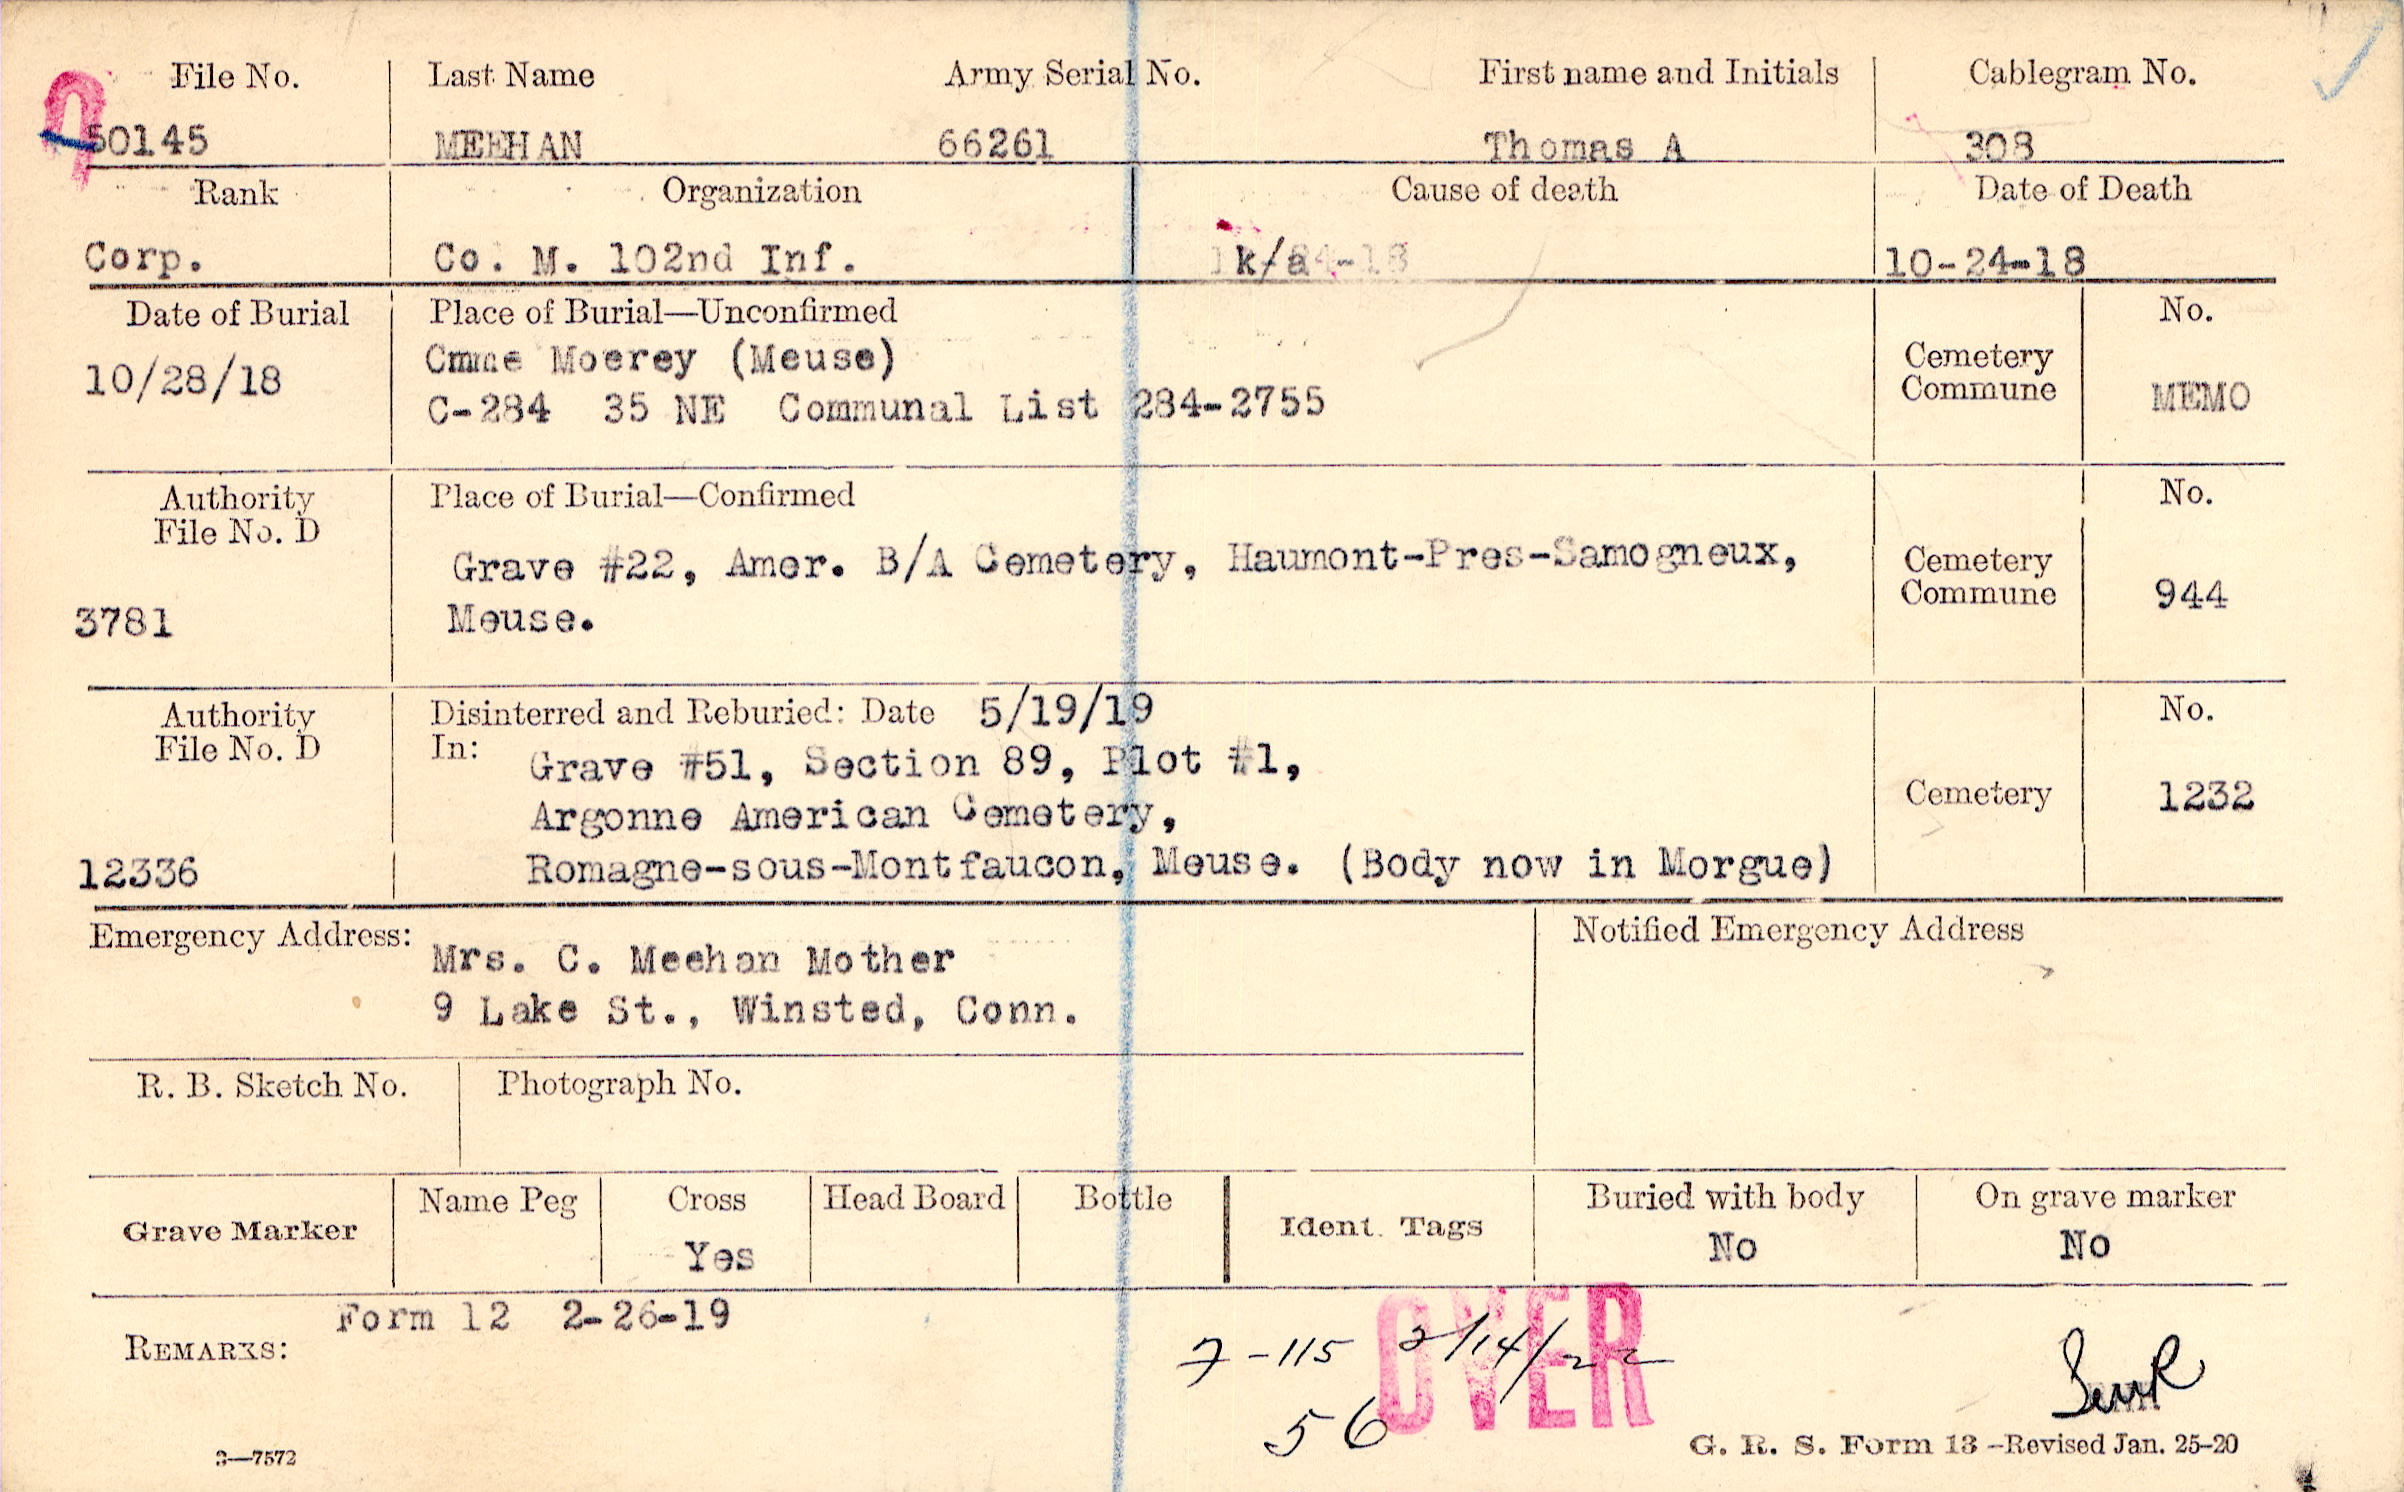 File No. Last Name Army Serial No. First name and Initials Cablegram No.
50145 MEEHAN 66261 Thomas A 308
Rank Organization Cause of death Date of Death
Corp. Co. M. 102nd Inf. k/a 10-24-18
Date of Burial Place of Burial—Unconfirmed No.
Cmne Moerey (Meuse) Cemetery
10/28/18 Commune MEMO
C-284 35 NE Communal List 284-2755
Authority Place of Burial—Confirmed No.
File No. D
Grave #22, Amer. B/A Cemetery, Haumont-Pres-Samogneux, Cemetery
Commune 944
3781 Meuse.
Authority Disinterred and Reburied: Date 5/19/19 No.
File No. D In: Grave #51, Section 89, Plot #1,
Argonne American Cemetery, Cemetery 1232
12336 Romagne-sous-Montfaucon, Meuse. (Body now in Morgue)
Emergency Address: Notified Emergency Address
Mrs. C. Meehan Mother
9 Lake St., Winsted, Conn.
R. B. Sketch No. Photograph No.
Grave Marker Name Peg Cross Head Board Bottle Ident. Tags Buried with body On grave marker
Yes No No
Form 12 2-26-19
REMARKS: 7-115 2/14/22
OVER
56
3—7572 G. R. S. Form 13—Revised Jan. 25-20